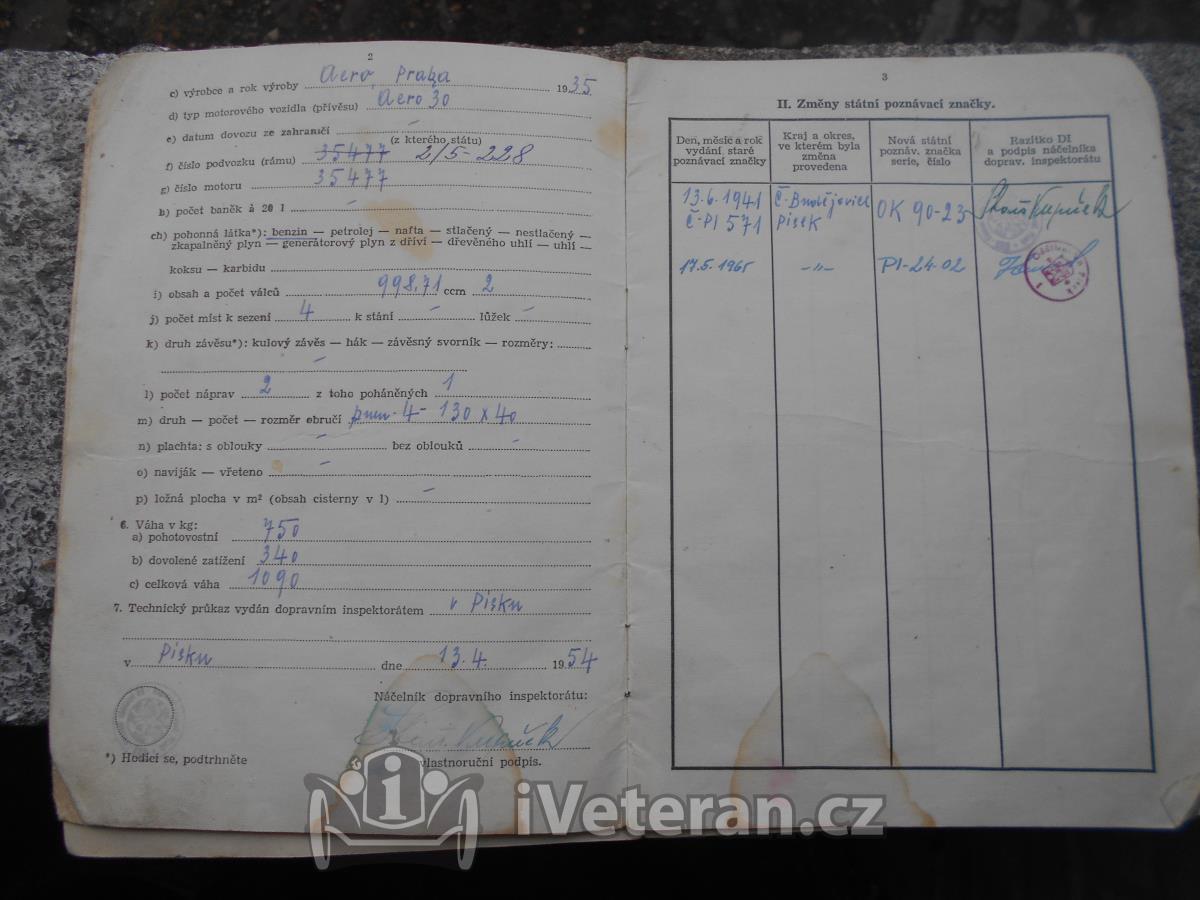 2
c) výrobce a rok výroby Aero, Praha 1935
d) typ motorového vozidla (přívěsu) Aero 30
e) datum dovozu ze zahraničí –
(z kterého státu)
f) číslo podvozku (rámu) 35477 2/5-228
g) číslo motoru 35477
h) počet baněk à 20 l –
ch) pohonná látka*): benzin — petrolej — nafta — stlačený — nestlačený —
zkapalněný plyn — generátorový plyn z dříví — dřevěného uhlí — uhlí —
koksu — karbidu
i) obsah a počet válců 998,71 ccm 2
j) počet míst k sezení 4 k stání – lůžek –
k) druh závěsu*): kulový závěs — hák — závěsný svorník — rozměry:
–
l) počet náprav 2 z toho poháněných 1
m) druh — počet — rozměr obručí pneu - 4 - 130 x 40
n) plachta: s oblouky – bez oblouků –
o) naviják — vřeteno –
p) ložná plocha v m² (obsah cisterny v l) –
6. Váha v kg:
a) pohotovostní 750
b) dovolené zatížení 340
c) celková váha 1090
7. Technický průkaz vydán dopravním inspektorátem v Písku
v Písku dne 13.4. 1954
Náčelník dopravního inspektorátu:
*) Hodící se, podtrhněte
vlastnoruční podpis.
3
II. Změny státní poznávací značky.
Den, měsíc a rok
vydání staré
poznávací značky
Kraj a okres,
ve kterém byla
změna
provedena
Nová státní
poznáv. značka
serie, číslo
Razítko DI
a podpis náčelníka
doprav. inspektorátu
13.6.1941 Č-Budějovice OK 90-23
Č-PI 571 Písek
17.5.1965 –"– PI-24-02
iVeteran.cz